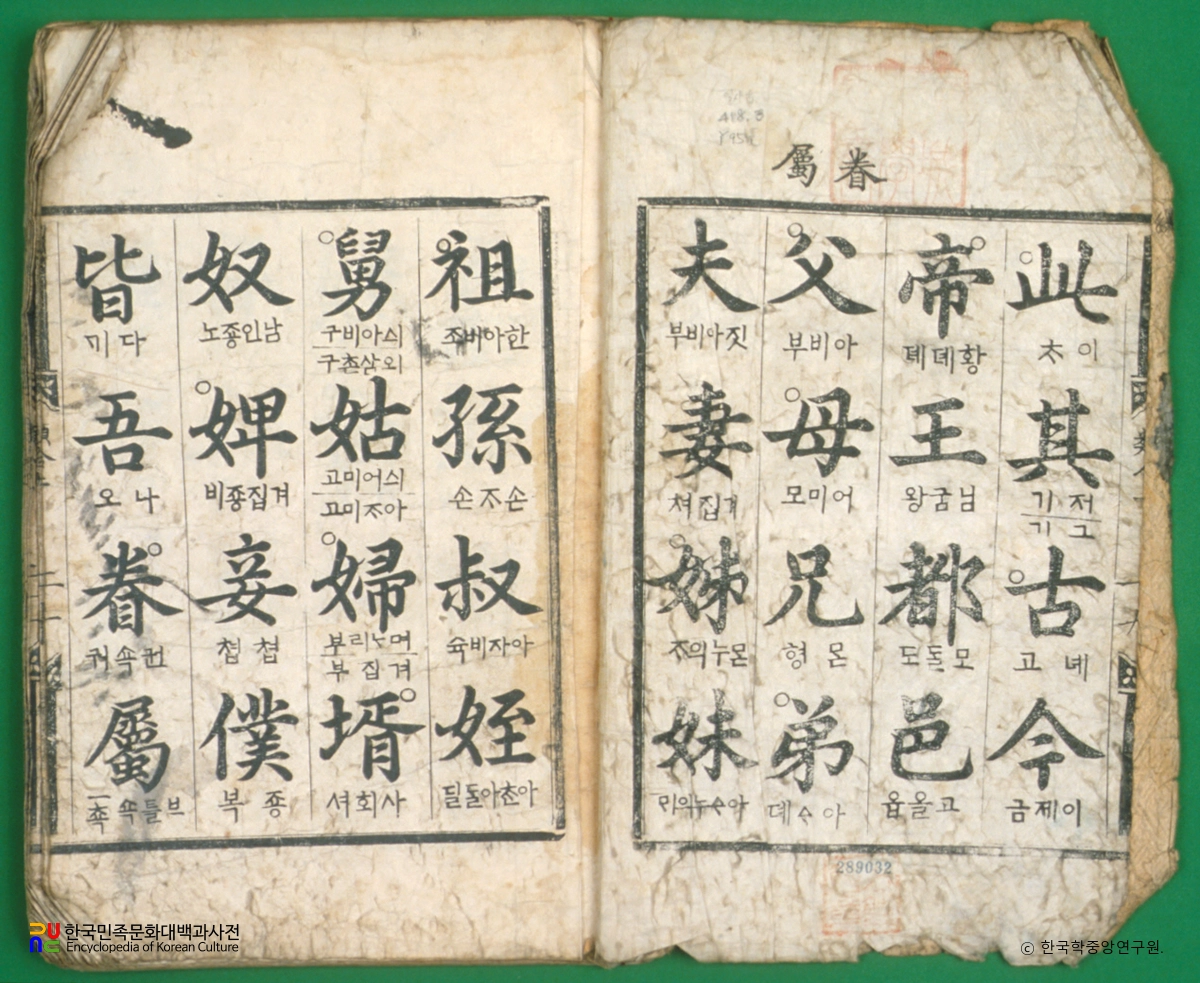 眷屬
此
이 ᄎᆞ
其
저 기
그 기
古
녜 고
今
이제 금
帝
황뎨 뎨
王
님굼 왕
都
모돌 도
邑
고올 읍
父
아비 부
母
어미 모
兄
ᄆᆞᆮ 형
弟
아ᄉᆞ 뎨
夫
짓아비 부
妻
겨집 쳐
姊
ᄆᆞᆮ누의 ᄌᆞ
妹
아ᄉᆞ누의 ᄆᆡ
祖
한아비 조
孫
손ᄌᆞ 손
叔
아자비 슉
姪
아ᄎᆞᆫ아ᄃᆞᆯ 딜
舅
싀아비 구
외삼촌 구
姑
싀어미 고
아ᄌᆞ미 고
婦
며ᄂᆞ리 부
겨집 부
壻
사회 셔
奴
남인죵 노
婢
겨집죵 비
妾
쳡 쳡
僕
죵 복
皆
다 ᄀᆡ
吾
나 오
眷
권쇽 권
屬
브틀 쇽
쵹
289032
한국민족문화대백과사전
Encyclopedia of Korean Culture
ⓒ 한국학중앙연구원.